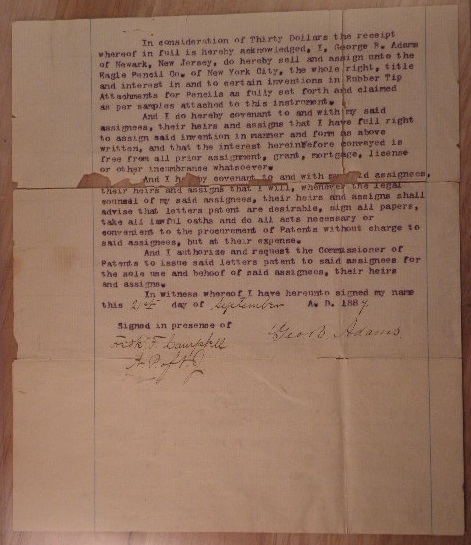 In consideration of Thirty Dollars the receipt
whereof in full is hereby acknowledged, I, George R. Adams
of Newark, New Jersey, do hereby sell and assign unto the
Eagle Pencil Co. of New York City, the whole right, title
and interest in and to certain inventions in Rubber Tip
Attachments for Pencils as fully set forth and claimed
as per samples attached to this instrument.
And I do hereby covenant to and with my said
assignees, their heirs and assigns that I have full right
to assign said invention in manner and form as above
written, and that the interest hereinbefore conveyed is
free from all prior assignment, grant, mortgage, license
or other incumbrance whatsoever.
And I hereby covenant to and with my said assignees,
their heirs and assigns that I will, whenever the legal
counsel of my said assignees, their heirs and assigns shall
advise that letters patent are desirable, sign all papers,
take all lawful oaths and do all acts necessary or
convenient to the procurement of Patents without charge to
said assignees, but at their expense.
And I authorize and request the Commissioner of
Patents to issue said letters patent to said assignees for
the sole use and behoof of said assignees, their heirs
and assigns.
In witness whereof I have hereunto signed my name
this day of September A. D. 1887.
Signed in presence of
Geo R Adams
Campbell